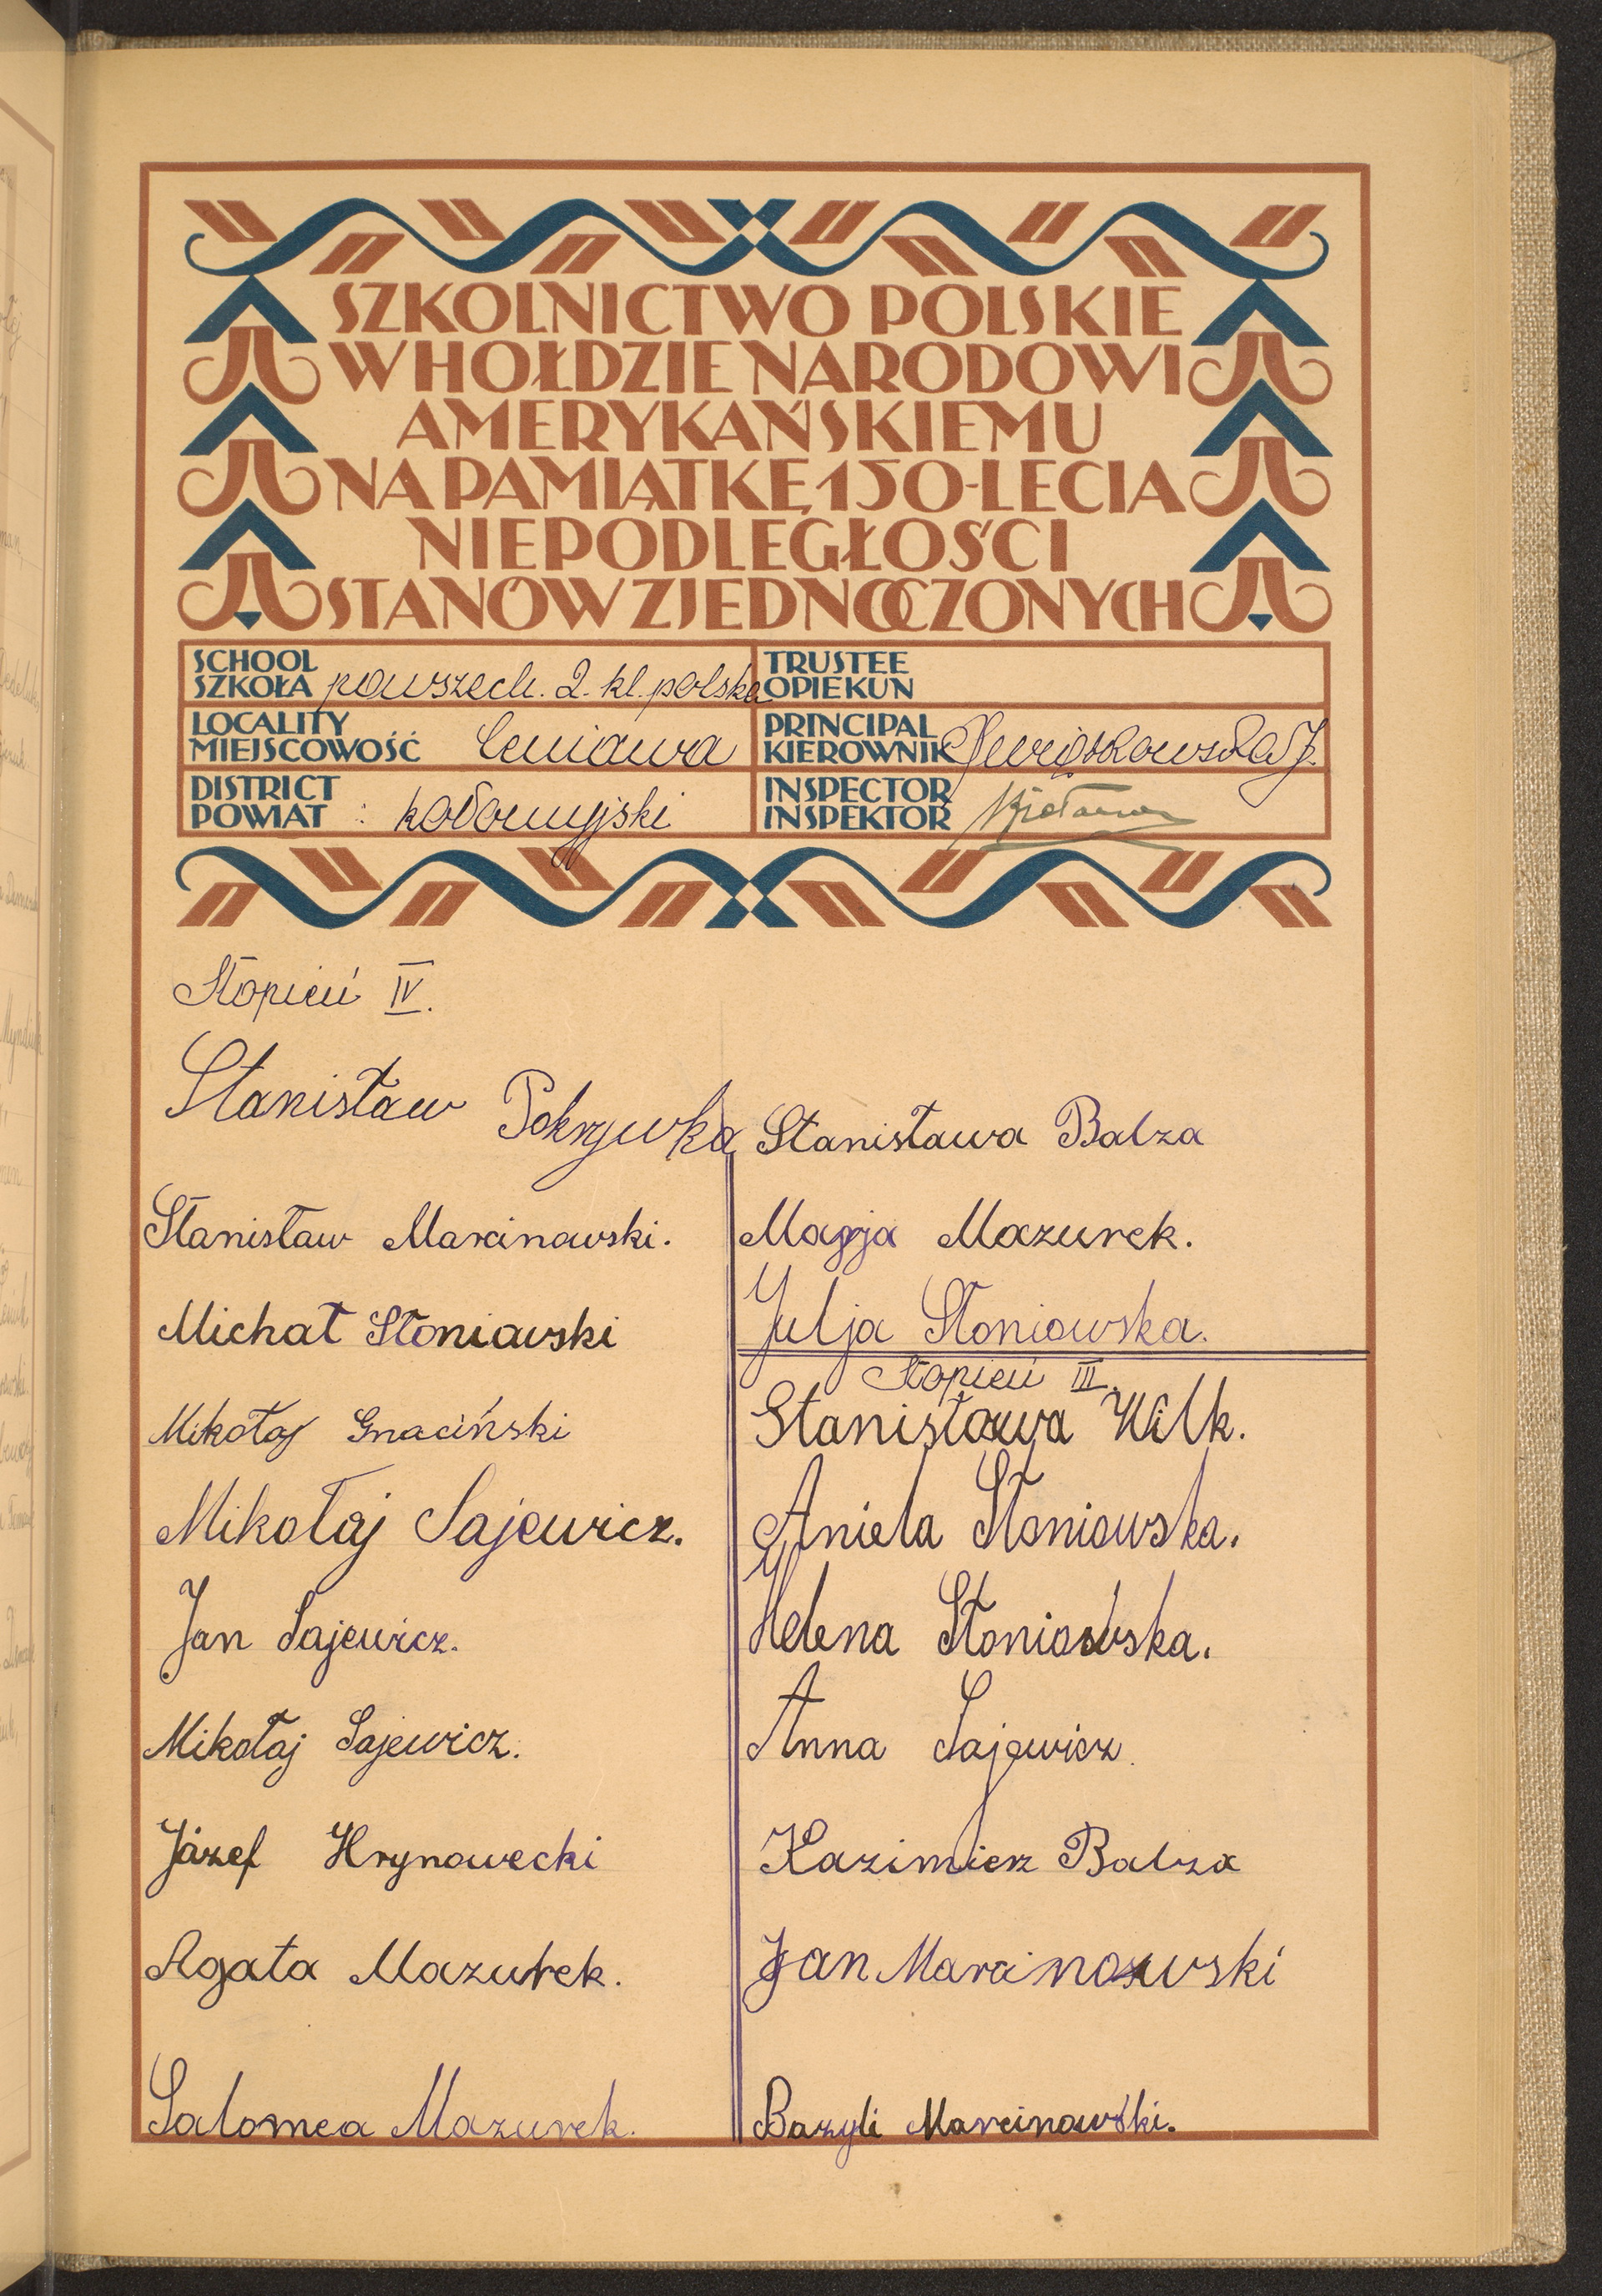 SZKOLNICTWO POLSKIE
W HOŁDZIE NARODOWI
AMERYKAŃSKIEMU
NA PAMIĄTKĘ 150-LECIA
NIEPODLEGŁOŚCI
STANÓW ZJEDNOCZONYCH
SCHOOL
SZKOŁA powszech. 2. kl. polska
TRUSTEE
OPIEKUN
LOCALITY
MIEJSCOWOŚĆ Ceniawa
PRINCIPAL
KIEROWNIK
DISTRICT
POWIAT : kołomyjski
INSPECTOR
INSPEKTOR
Stopień IV.
Stanisław Pokrzywka
Stanisław Marcinowski.
Michał Słoniowski
Mikołaj Gnaciński
Mikołaj Sajewicz.
Jan Sajewicz.
Mikołaj Sajewicz.
Józef Hrynowecki
Agata Mazurek.
Salomea Mazurek.
Stanisława Balza
Marja Mazurek.
Julja Słoniowska.
Stopień III.
Stanisława Wilk.
Aniela Słoniowska.
Helena Słoniowska.
Anna Sajewicz.
Kazimierz Balza
Jan Marcinowski
Bazyli Marcinowski.